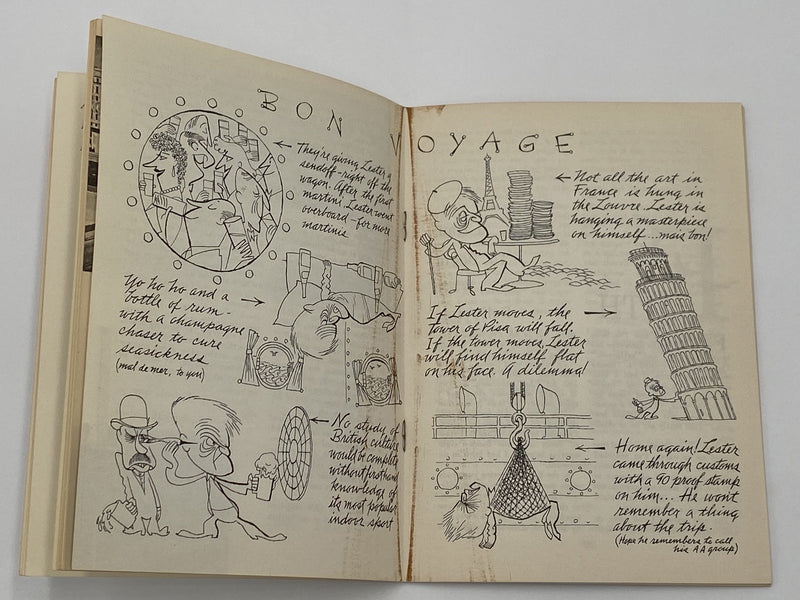 BON VOYAGE
They're giving Lester a
sendoff-right off the
wagon. After the first
martini Lester went
overboard - for more
martinis
Yo ho ho and a
bottle of rum -
with a champagne
chaser to cure
seasickness
(mal de mer, to you)
No study of
British culture
would be complete
without firsthand
knowledge of
its most popular
indoor sport
Not all the art in
France is hung in
the Louvre. Lester is
hanging a masterpiece
on himself...mais bon!
If Lester moves, the
Tower of Pisa will fall.
If the tower moves, Lester
will find himself flat
on his face. A dilemma!
Home again! Lester
came through customs
with a 90 proof stamp
on him... He won't
remember a thing
about the trip.
(Hope he remembers to call
his AA group)